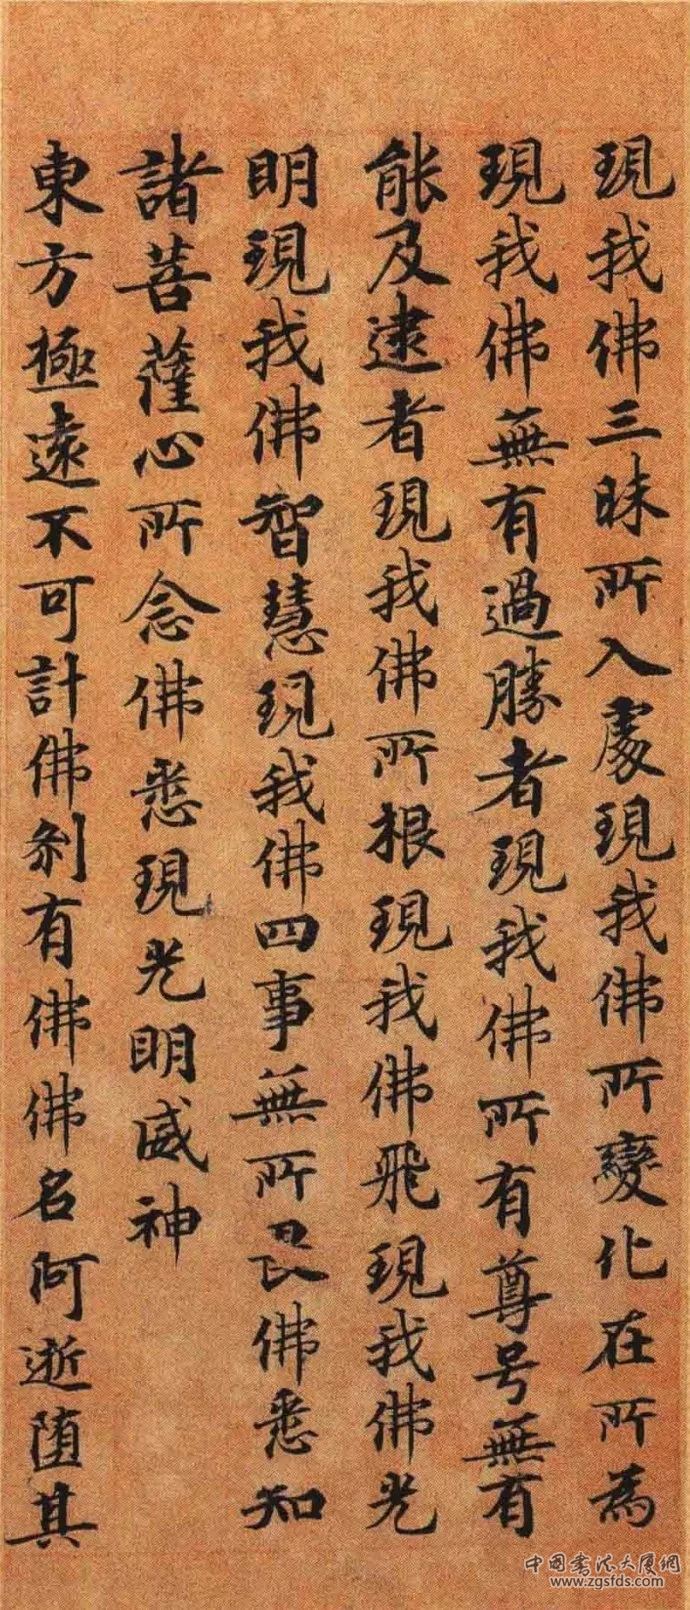 現我佛三昧所入處現我佛所變化在所為
現我佛無有過勝者現我佛所有尊号無有
能及逮者現我佛所根現我佛飛現我佛光
明現我佛智慧現我佛四事無所畏佛悉知
諸菩薩心所念佛悉現光明威神
東方極遠不可計佛剎有佛佛名阿逝墮其
中国书法大厦網
www.zgsfds.com